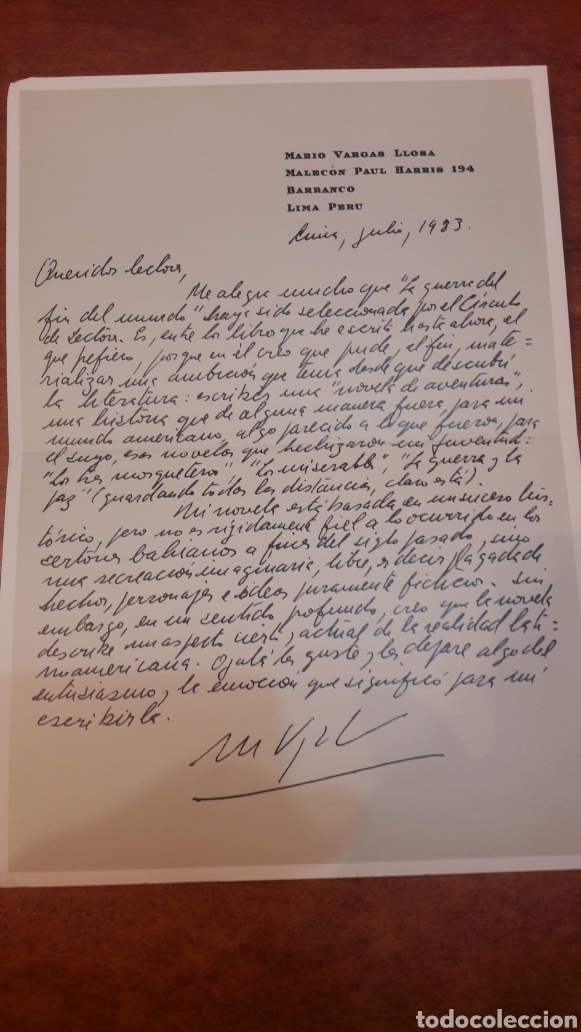 MARIO VARGAS LLOSA
MALECÓN PAUL HARRIS 194
BARRANCO
LIMA PERU
Lima, julio, 1983.
Queridos lectores,
Me alegra mucho que "La guerra del
fin del mundo" haya sido seleccionada por el Círculo
de Lectores. Es, entre los libros que he escrito hasta ahora, el
que prefiero, porque en él creo que pude, al fin, mate=
rializar una ambición que tenía desde que descubrí
la literatura: escribir una "novela de aventuras",
una historia que de alguna manera fuera, para mi
mundo americano, algo parecido a lo que fueron, para
el suyo, esas novelas que hechizaron mi juventud:
"Los tres mosqueteros", "Los miserables", "La guerra y la
paz" (guardando todas las distancias, claro está).
Mi novela está basada en un suceso his=
tórico, pero no es rigidamente fiel a lo ocurrido en los
sertones bahianos a fines del siglo pasado, sino
una recreación imaginaria, libre, es decir plagada de
hechos, personajes e ideas puramente ficticios. Sin
embargo, en un sentido profundo, creo que la novela
describe un aspecto cierto, actual de la realidad lati=
noamericana. Ojalá les guste y les depare algo del
entusiasmo y la emoción que significó para mí
escribirla.
todocoleccion